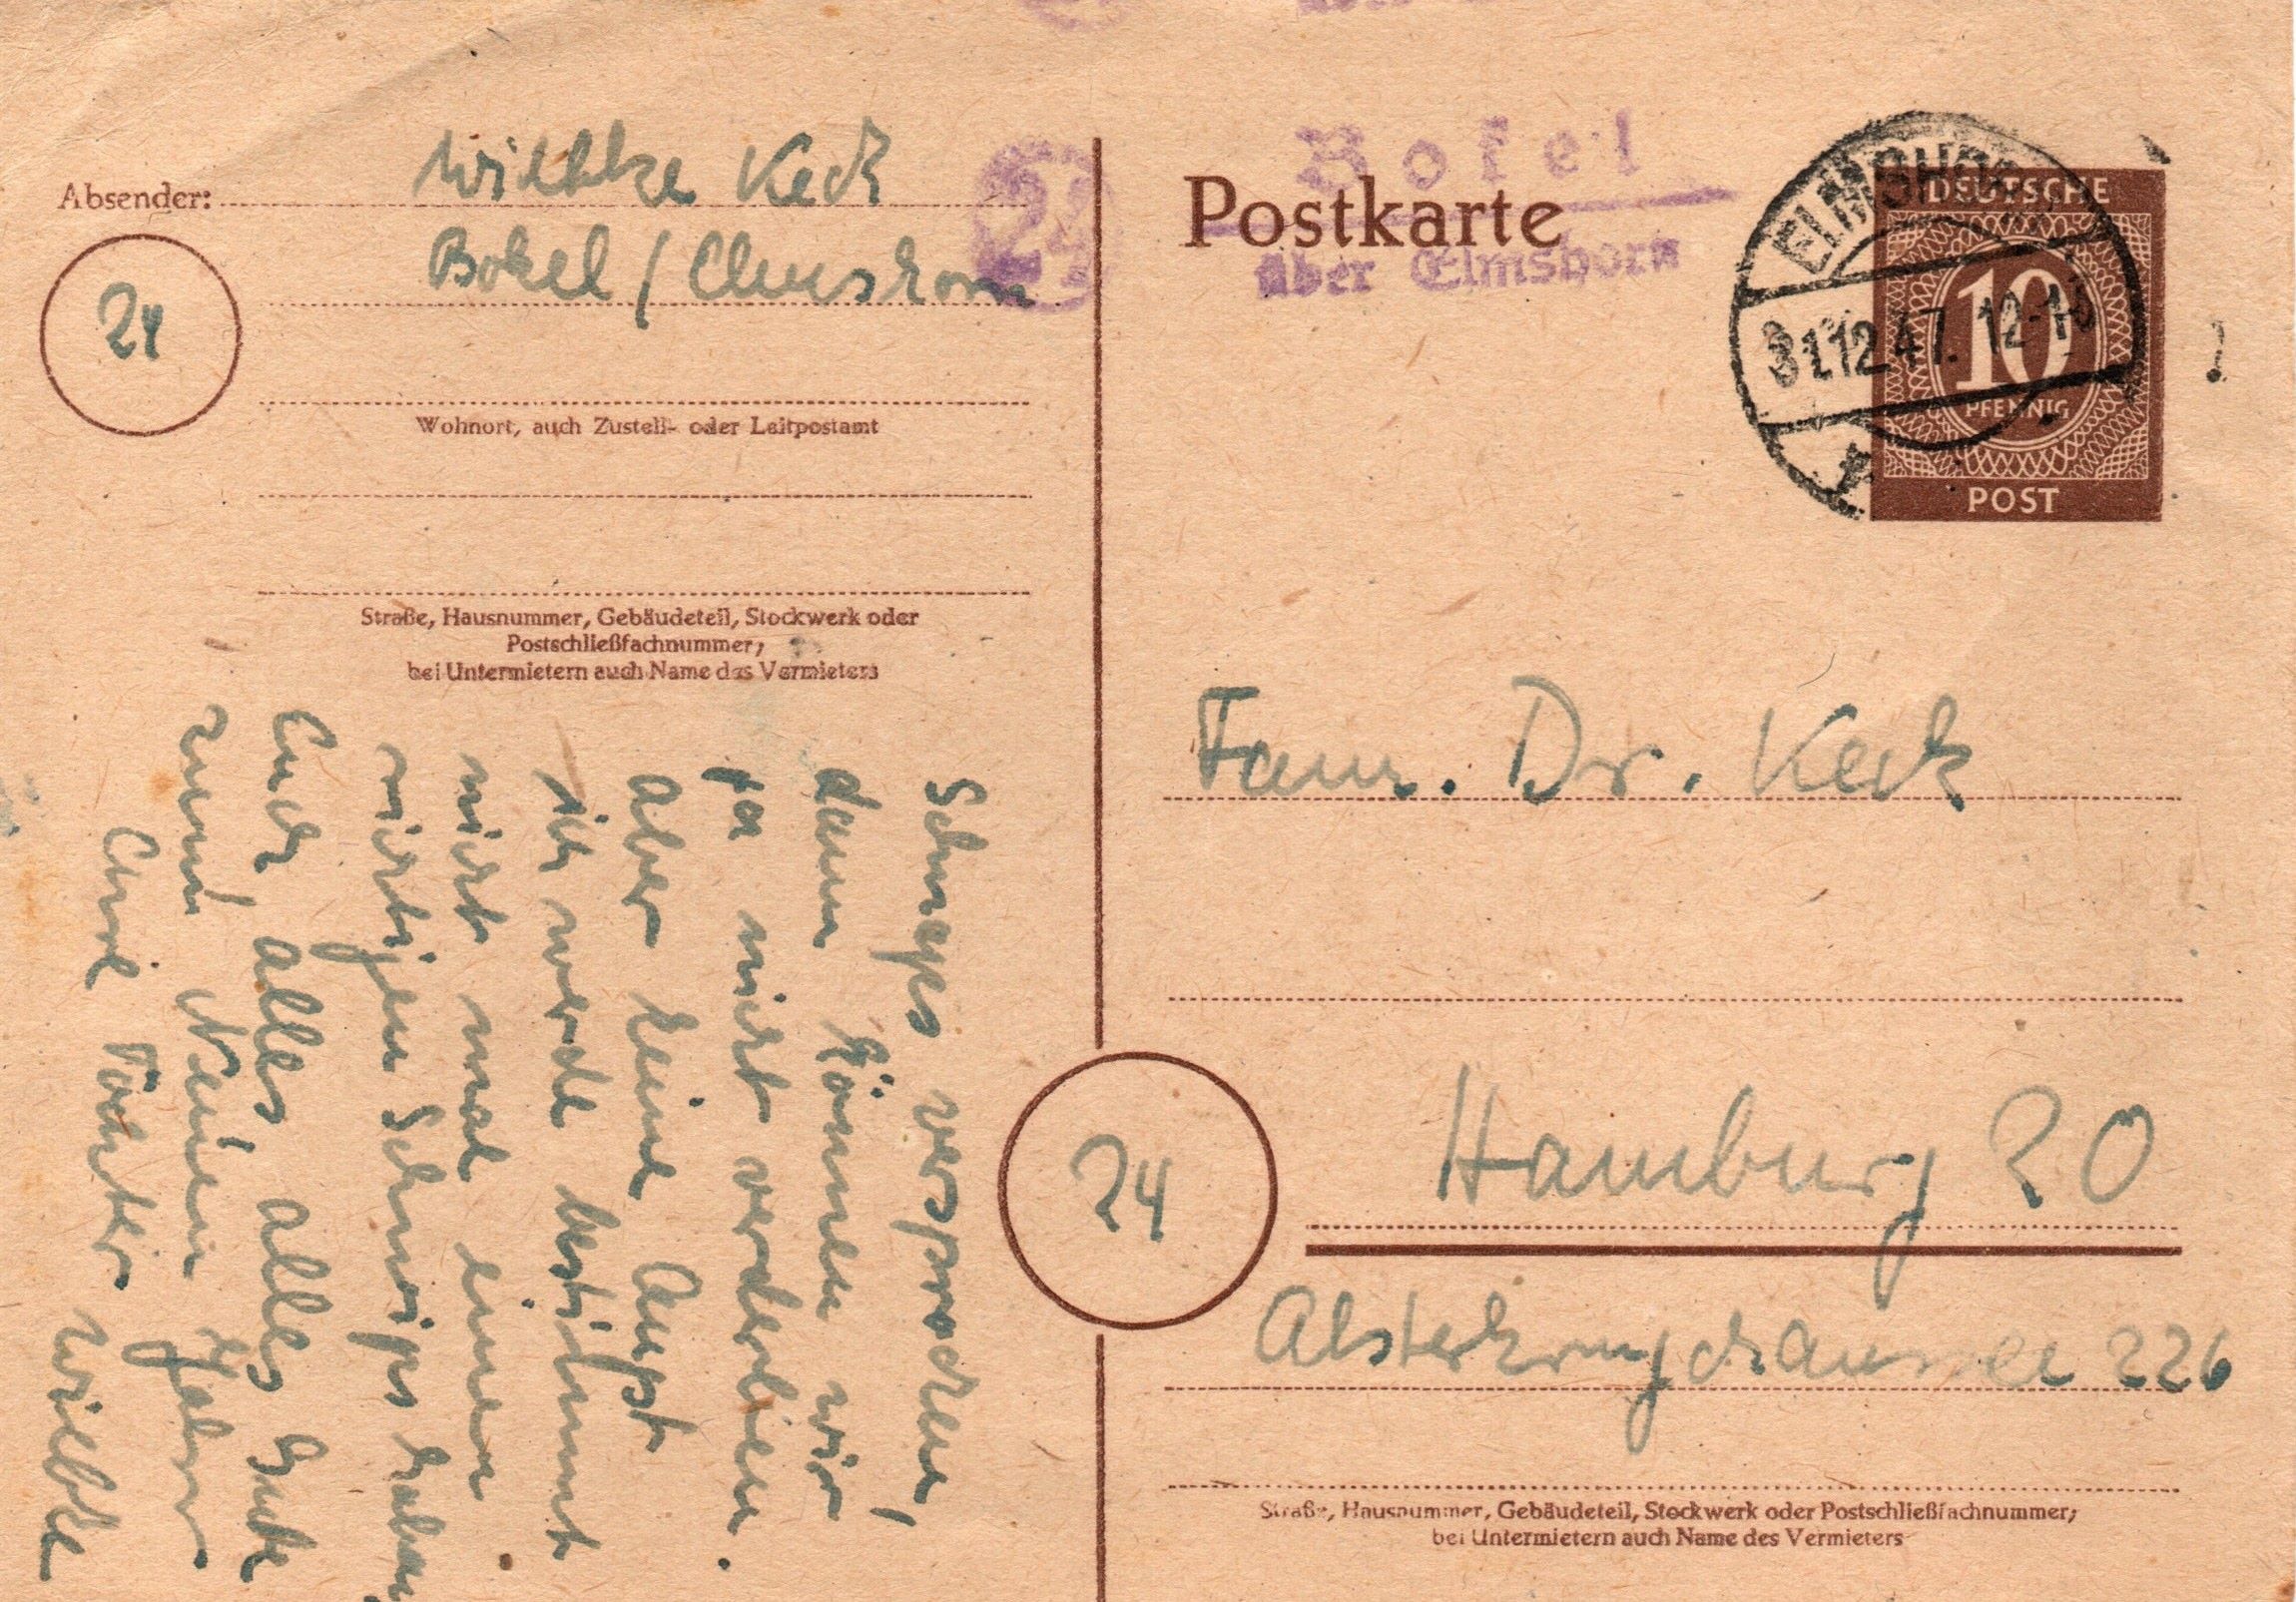 Absender: Wiebke Keck
Bokel / Elmshorn
24
Wohnort, auch Zustell- oder Leitpostamt
Straße, Hausnummer, Gebäudeteil, Stockwerk oder
Postschließfachnummer;
bei Untermietern auch Name des Vermieters
24
Bokel
über Elmshorn
Postkarte
ELMSHORN
31.12.47. 12-13
DEUTSCHE
10
PFENNIG
POST
Fam. Dr. Keck
24
Hamburg 20
Alsterkrugchaussee 226
Straße, Hausnummer, Gebäudeteil, Stockwerk oder Postschließfachnummer;
bei Untermietern auch Name des Vermieters
Schnaps versprochen,
dann können wir
ja nicht verderben.
Aber keine Angst
ich werde bestimmt
nicht mal einen
richtigen Schwips haben
Euch alles alles Gute
zum Neuen Jahr
Eure Tochter Wiebke